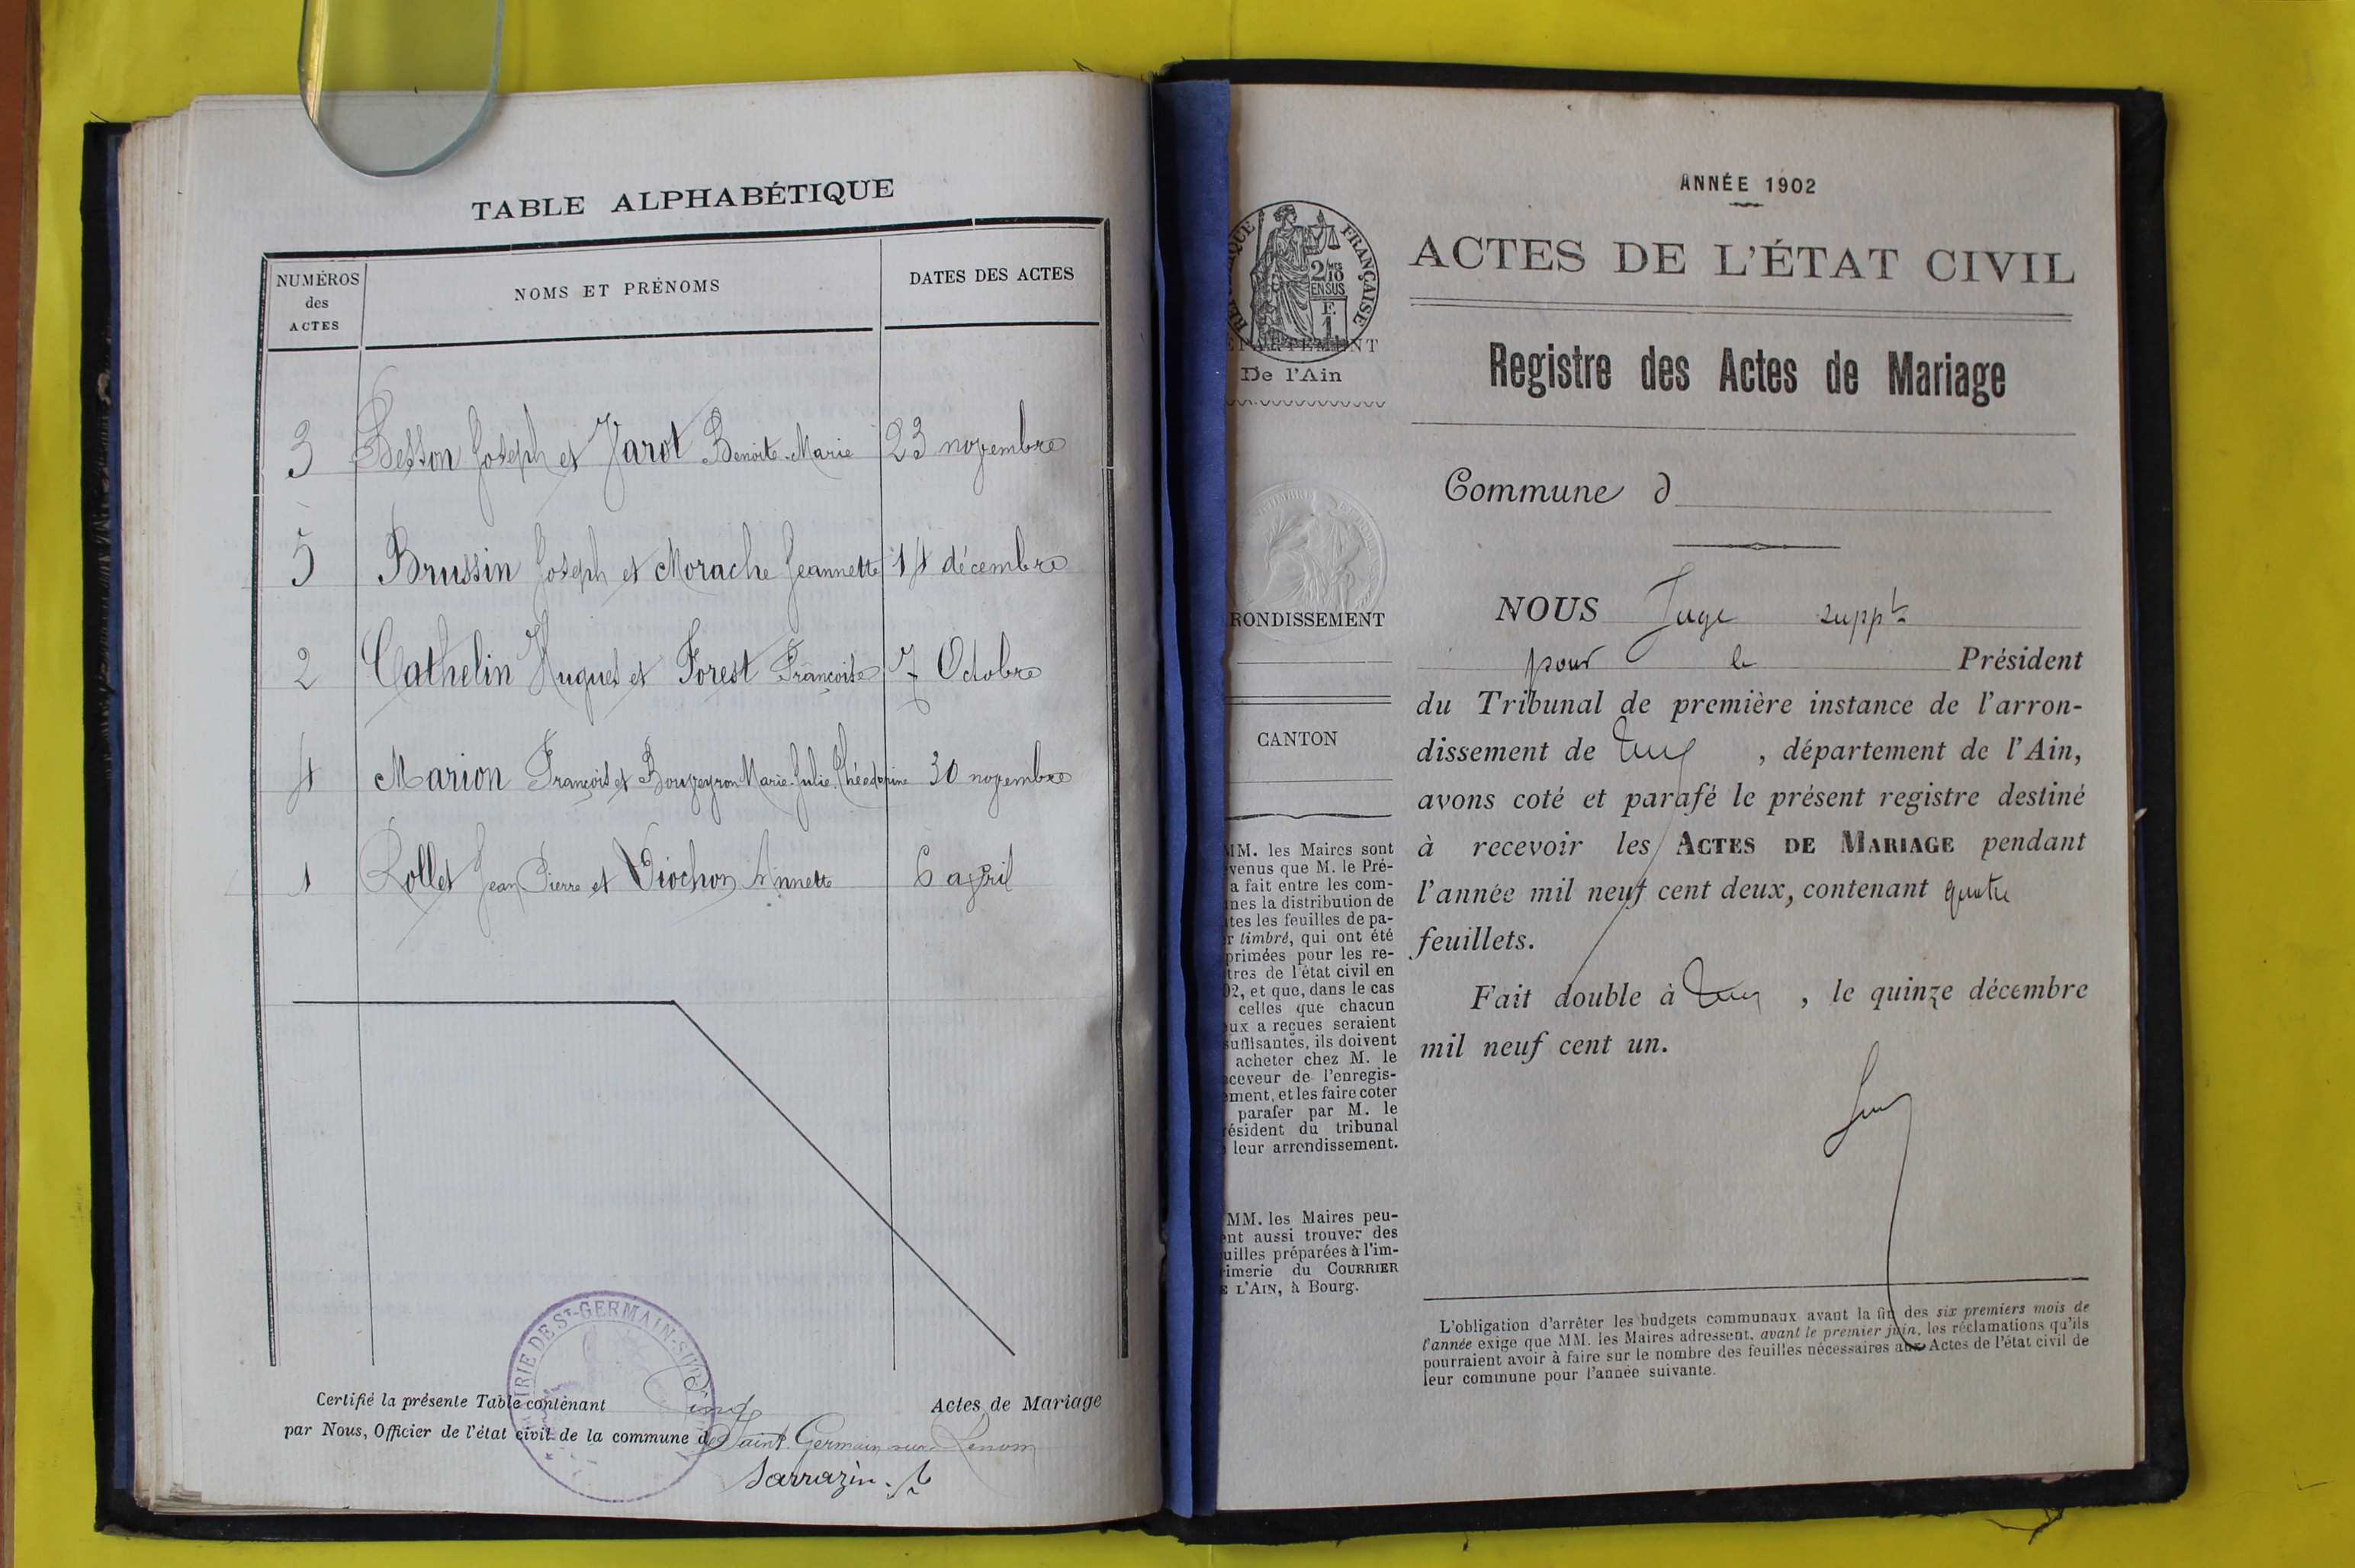 TABLE ALPHABÉTIQUE
NUMÉROS
des
ACTES
NOMS ET PRÉNOMS
DATES DES ACTES
3 Besson Joseph et Jarot Benoite-Marie 23 novembre
5 Brussin Joseph et Morache Jeannette 14 décembre
2 Cathelin Hugues et Forest Françoise 7 Octobre
4 Marion François et Bouveyron Marie-Julie 30 novembre
1 Rollet Jean Pierre et Viochon Annette 6 avril
Certifié la présente Table contenant Cinq Actes de Mariage
par Nous, Officier de l'état civil de la commune de Saint Germain sur Renom
Sarrazin
MAIRIE DE ST-GERMAIN-SUR
ANNÉE 1902
RÉPUBLIQUE FRANÇAISE
2/10mes
EN SUS
F.
1
DÉPARTEMENT
De l'Ain
RONDISSEMENT
CANTON
MM. les Maires sont
venus que M. le Pré-
a fait entre les com-
nes la distribution de
tes les feuilles de pa-
r timbré, qui ont été
primées pour les re-
tres de l'état civil en
02, et que, dans le cas
celles que chacun
eux a reçues seraient
suffisantes, ils doivent
acheter chez M. le
ceveur de l'enregis-
ement, et les faire coter
parafer par M. le
résident du tribunal
leur arrondissement.
MM. les Maires peu-
ent aussi trouver des
uilles préparées à l'im-
imerie du COURRIER
E L'AIN, à Bourg.
ACTES DE L'ÉTAT CIVIL
Registre des Actes de Mariage
Commune d
NOUS Juge suppt
pour le Président
du Tribunal de première instance de l'arron-
dissement de , département de l'Ain,
avons coté et parafé le présent registre destiné
à recevoir les ACTES DE MARIAGE pendant
l'année mil neuf cent deux, contenant quatre
feuillets.
Fait double à , le quinze décembre
mil neuf cent un.
L'obligation d'arrêter les budgets communaux avant la fin des six premiers mois de
l'année exige que MM. les Maires adressent, avant le premier juin, les réclamations qu'ils
pourraient avoir à faire sur le nombre des feuilles nécessaires aux Actes de l'état civil de
leur commune pour l'année suivante.